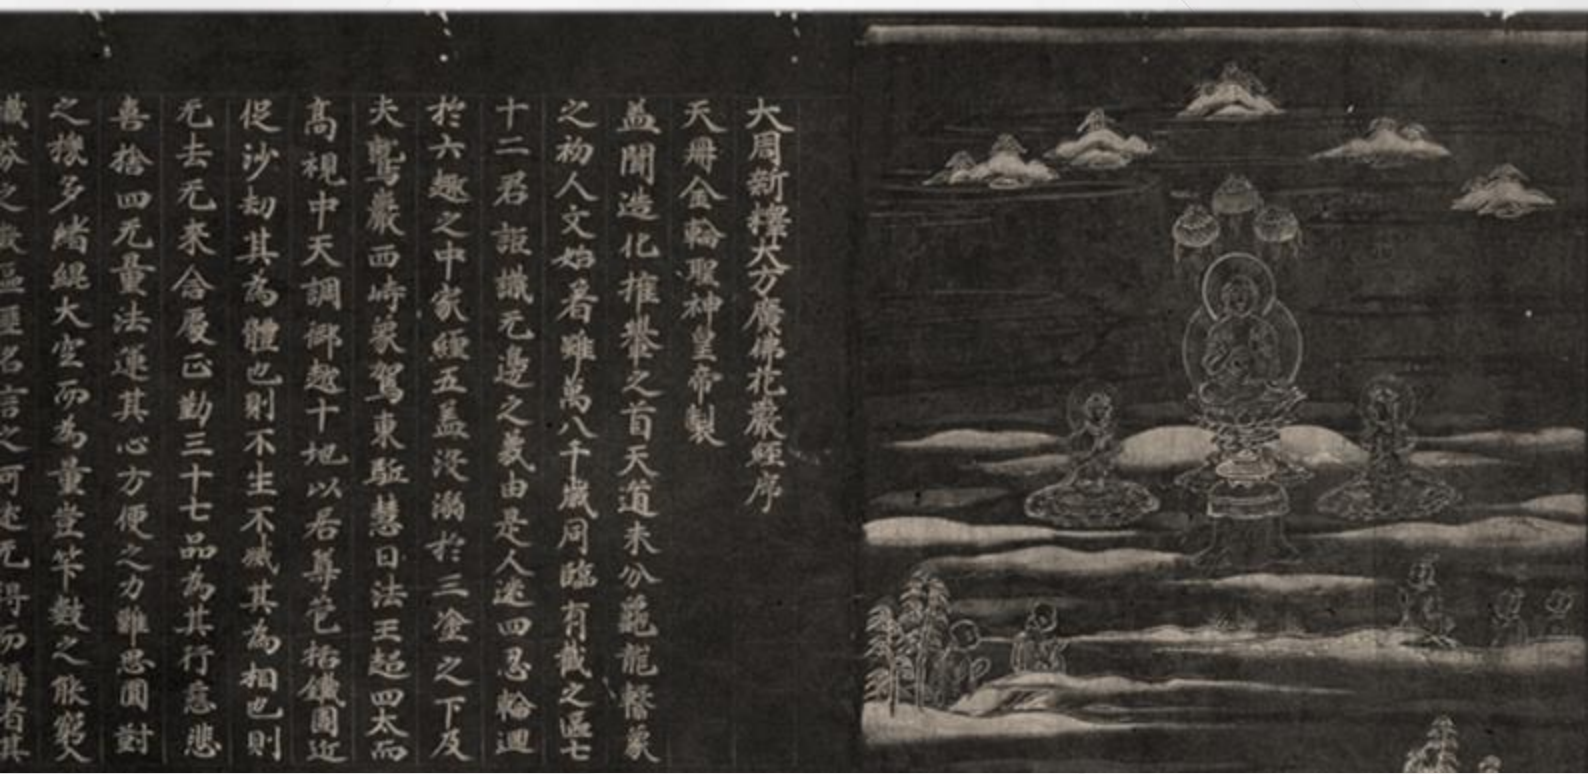 大周新譯大方廣佛花嚴經序
天冊金輪聖神皇帝製
盖聞造化權轝之首天道未分龜龍繫象
之初人文始著雖萬八千歲同臨有截之區七
十二君詎識无邊之義由是人迷四忍輪迴
於六趣之中家纏五盖沒溺於三塗之下及
夫鷲巖西峙象駕東駈慧日法王超四太而
高視中天調御越十地以居尊包括鐵圍延
促沙劫其為體也則不生不滅其為相也則
无去无來念處正勤三十七品為其行慈悲
喜捨四无量法運其心方便之力難思圓對
之機多緒緄大空而為量豈筭數之能窮入
纖芥之微區匪名言之可述无得而稱者其